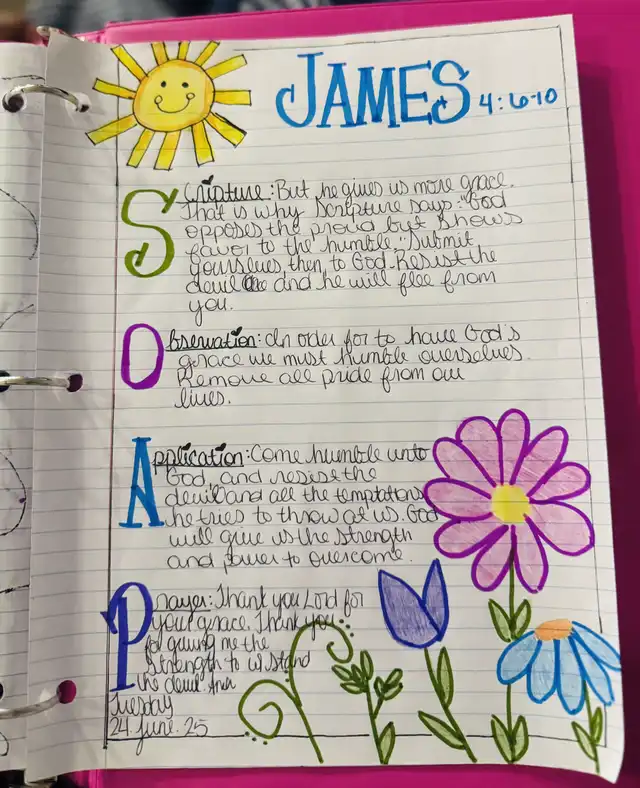 JAMES 4:6-10
Scripture: But he gives us more grace.
That is why Scripture says: "God
opposes the proud but shows
favor to the humble." Submit
yourselves, then to God. Resist the
devil and he will flee from
you.
Observation: In order for to have God's
grace we must humble ourselves.
Remove all pride from our
lives.
Application: Come humble unto
God, and resist the
devil and all the temptations
he tries to throw at us. God
will give us the strength
and power to overcome.
Prayer: Thank you Lord for
your grace. Thank you
for giving me the
strength to
the devil.
Tuesday
24 June. 25